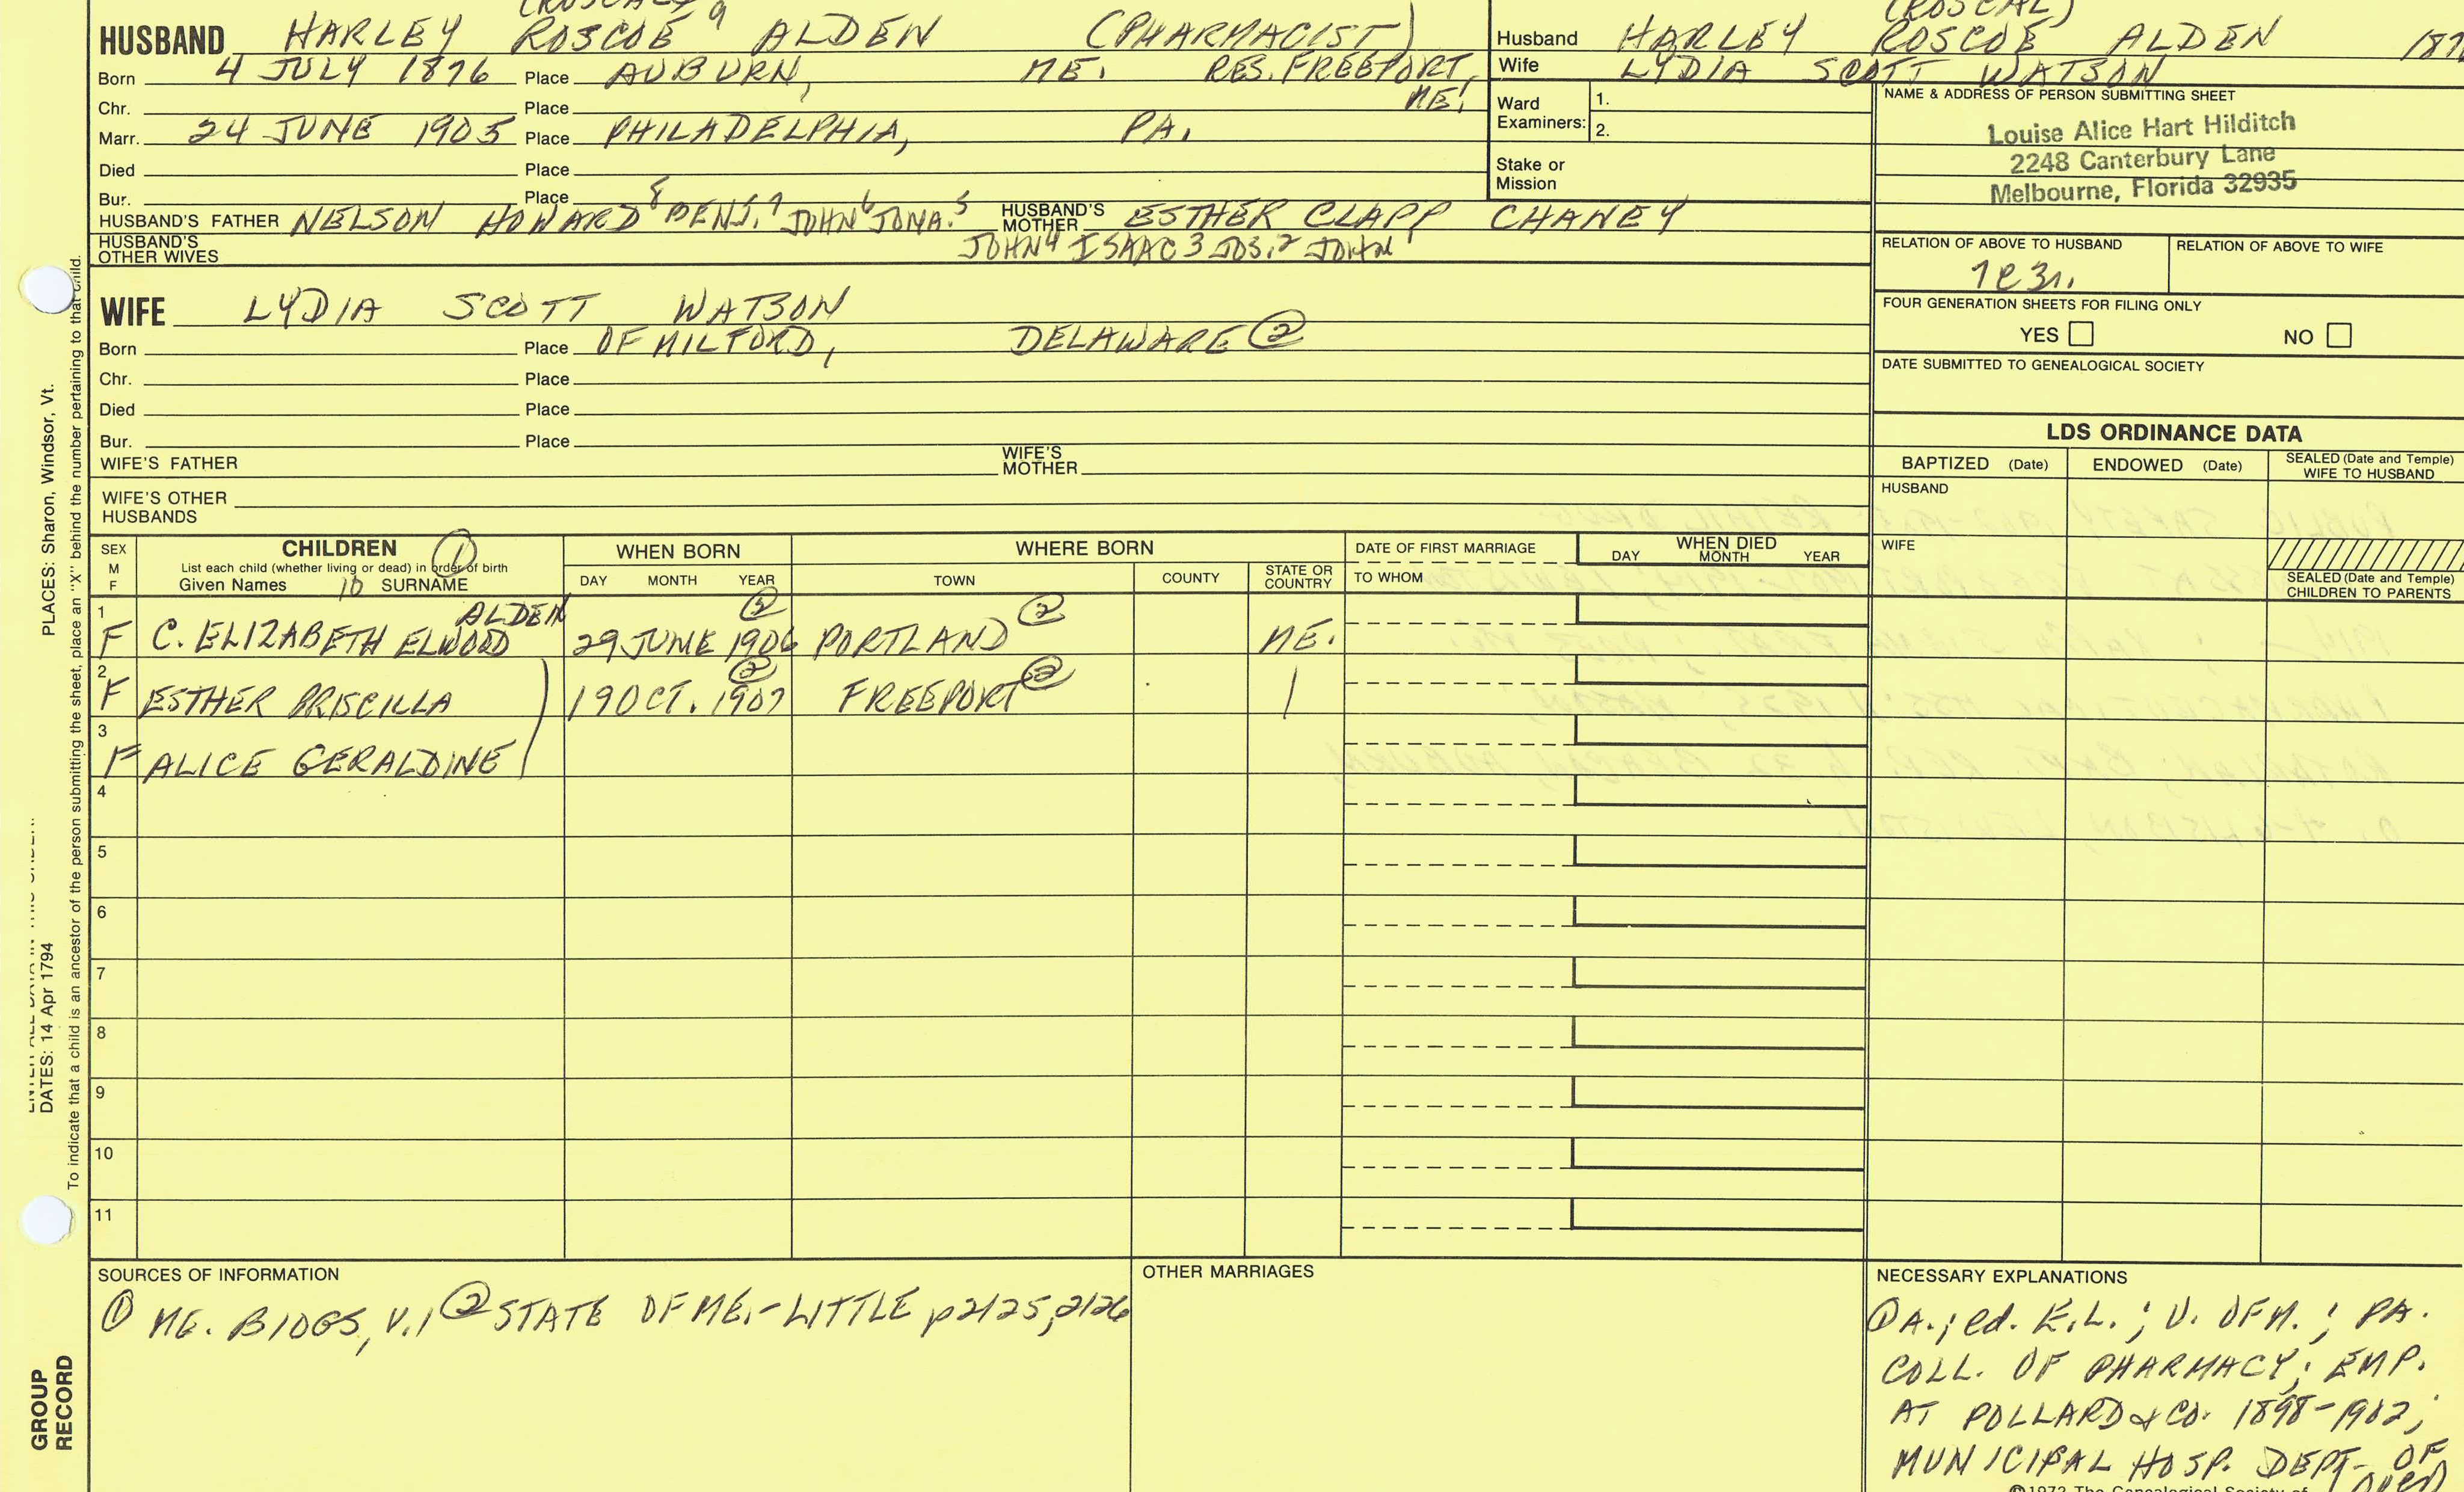 (ROSCAL) 9
HUSBAND HARLEY ROSCOE ALDEN (PHARMACIST)
Born 4 JULY 1876 Place AUBURN, ME. RES. FREEPORT, ME.
Chr. Place
Marr. 24 JUNE 1905 Place PHILADELPHIA, PA.
Died Place
Bur. Place
HUSBAND'S FATHER NELSON HOWARD 8 BENJ. 7 JOHN 6 JONA. 5 HUSBAND'S MOTHER ESTHER CLAPP CHANEY
HUSBAND'S OTHER WIVES JOHN 4 ISAAC 3 JOS. 2 JOHN 1
WIFE LYDIA SCOTT WATSON
Born Place OF MILFORD, DELAWARE ②
Chr. Place
Died Place
Bur. Place
WIFE'S FATHER WIFE'S MOTHER
WIFE'S OTHER HUSBANDS
(ROSCAL)
Husband HARLEY ROSCOE ALDEN 187
Wife LYDIA SCOTT WATSON
Ward Examiners: 1.
2.
Stake or Mission
NAME & ADDRESS OF PERSON SUBMITTING SHEET
Louise Alice Hart Hilditch
2248 Canterbury Lane
Melbourne, Florida 32935
RELATION OF ABOVE TO HUSBAND RELATION OF ABOVE TO WIFE
FOUR GENERATION SHEETS FOR FILING ONLY
YES NO
DATE SUBMITTED TO GENEALOGICAL SOCIETY
LDS ORDINANCE DATA
BAPTIZED (Date) ENDOWED (Date) SEALED (Date and Temple) WIFE TO HUSBAND
HUSBAND
WIFE
SEALED (Date and Temple) CHILDREN TO PARENTS
SEX M F CHILDREN ① WHEN BORN WHERE BORN DATE OF FIRST MARRIAGE WHEN DIED
List each child (whether living or dead) in order of birth
Given Names 10 SURNAME DAY MONTH YEAR TOWN COUNTY STATE OR COUNTRY TO WHOM DAY MONTH YEAR
1 F C. ELIZABETH ELWOOD ALDEN 29 JUNE 1906 ② PORTLAND ② ME.
2 F ESTHER PRISCILLA 19 OCT. 1907 ② FREEPORT ② |
3 F ALICE GERALDINE
4
5
6
7
8
9
10
11
SOURCES OF INFORMATION
① ME. BIOGS, V.1 ② STATE OF ME.-LITTLE p2125, 2126
OTHER MARRIAGES
NECESSARY EXPLANATIONS
① A.; ed. E.L.; U. OF M.; PA.
COLL. OF PHARMACY; EMP.
AT POLLARD & CO. 1898-1902;
MUNICIPAL HOSP. DEPT. OF
(over)
©1972 The Genealogical Society of
PLACES: Sharon, Windsor, Vt.
DATES: 14 Apr 1794
To indicate that a child is an ancestor of the person submitting the sheet, place an "X" behind the number pertaining to that child.
GROUP
RECORD